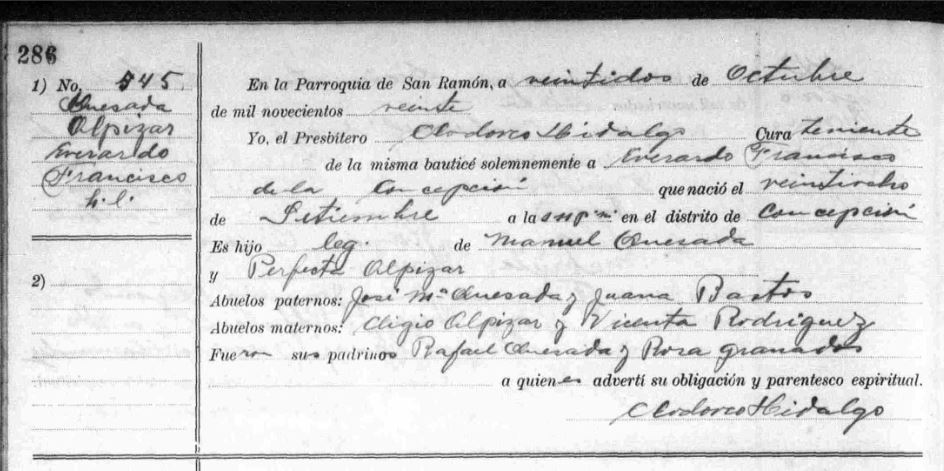 286
1) No. 545.
Quesada
Alpizar
Everardo
Francisco
h. l.
2)
En la Parroquia de San Ramón, a veintidos de Octubre
de mil novecientos veinte
Yo, el Presbítero Clodoveo Hidalgo Cura teniente
de la misma bauticé solemnemente a Everardo Francisco
de la Concepción que nació el veintiocho
de Setiembre a la en el distrito de Concepción
Es hijo leg. de Manuel Quesada
y Perfecta Alpizar
Abuelos paternos: José Mª Quesada y Juana Bastos
Abuelos maternos: Eligio Alpizar y Vicenta Rodriguez
Fueron sus padrinos Rafael Quesada y Rosa Granados
a quienes advertí su obligación y parentesco espiritual.
Clodoveo Hidalgo